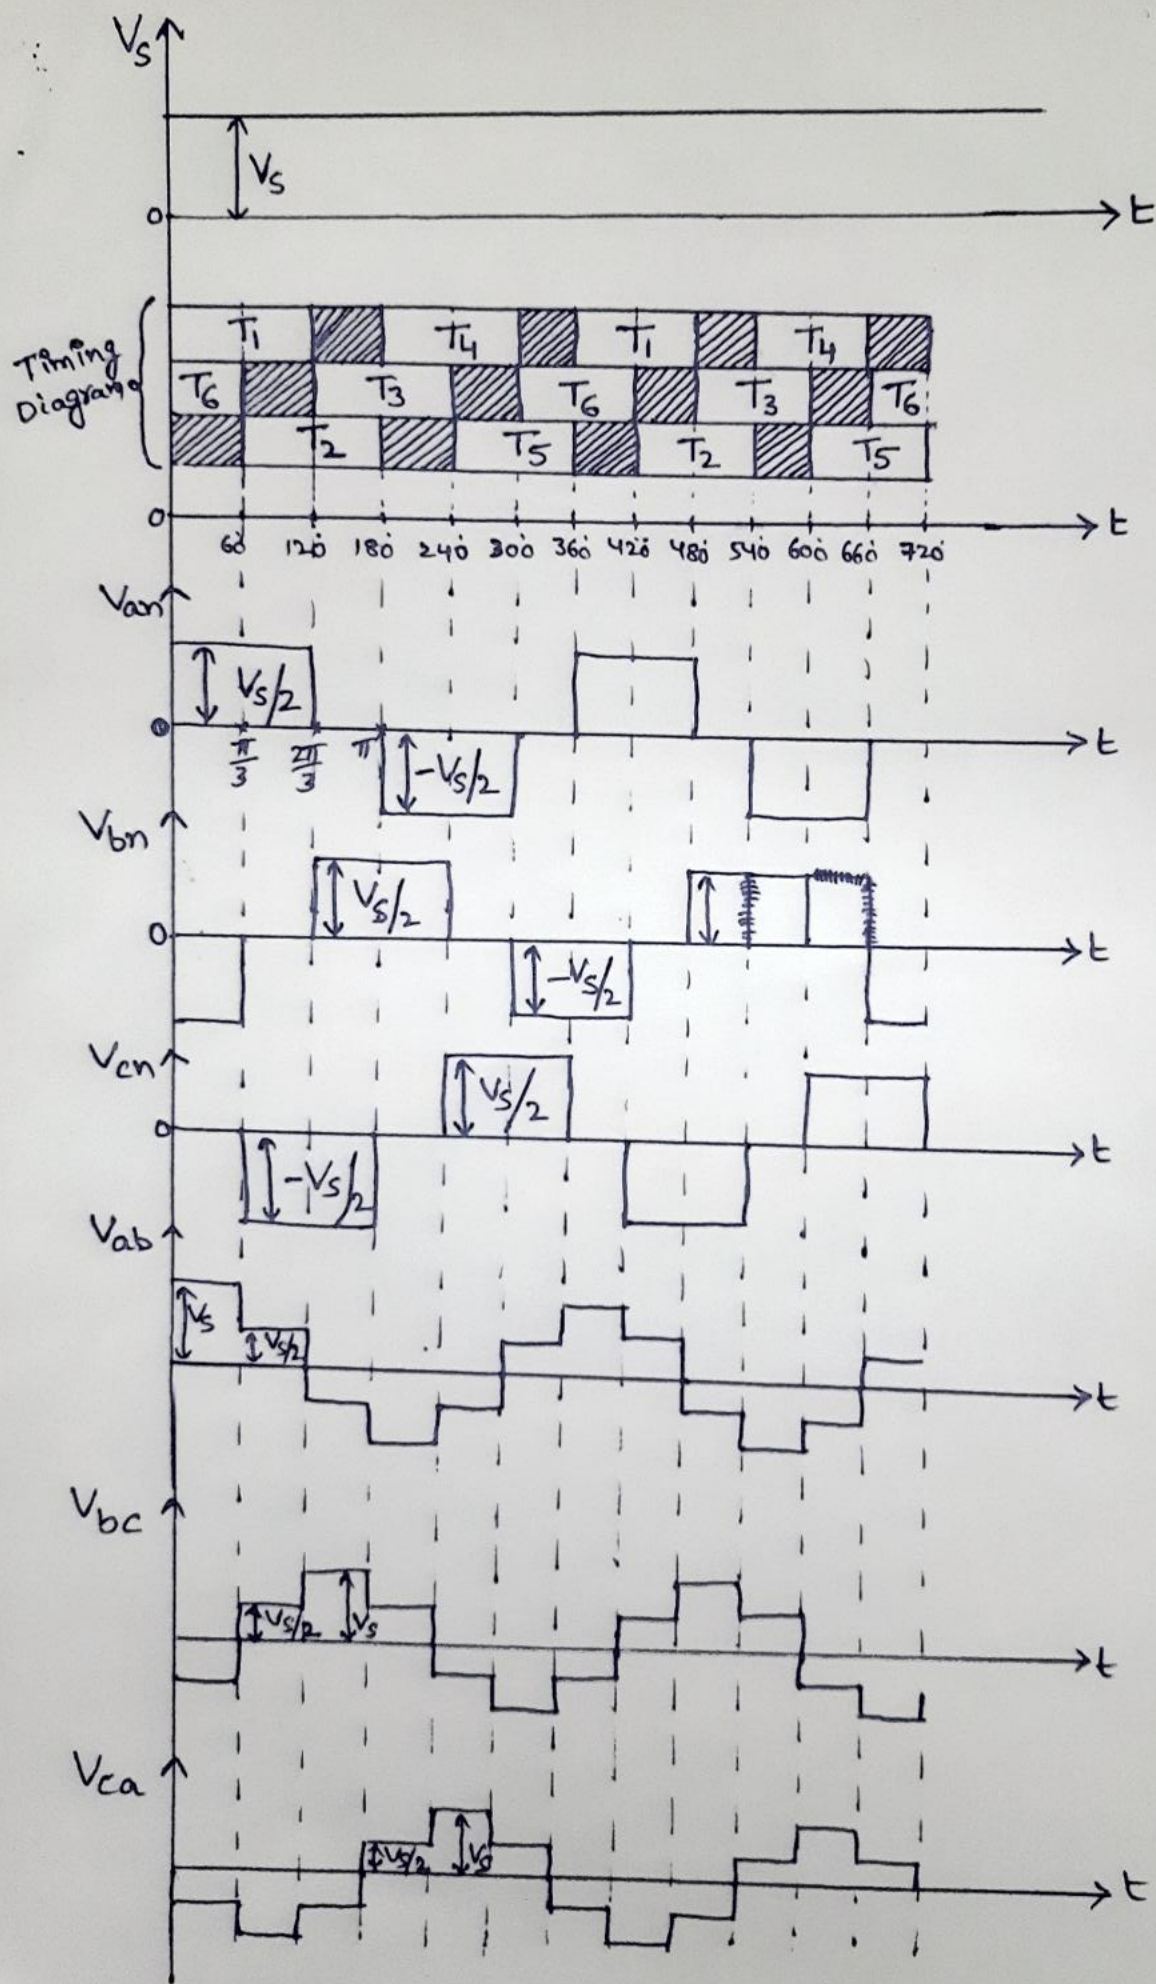 Vs
Vs
0
t
Timing Diagram
T1 T4 T1 T4
T6 T3 T6 T3 T6
T2 T5 T2 T5
0
t
60° 120° 180° 240° 300° 360° 420° 480° 540° 600° 660° 720°
Van
Vs/2
0
π/3 2π/3 π
-Vs/2
t
Vbn
Vs/2
0
-Vs/2
t
Vcn
Vs/2
0
-Vs/2
t
Vab
Vs
Vs/2
t
Vbc
Vs/2
Vs
t
Vca
Vs/2
Vs
t